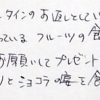 タインのお返しとしてい
っている フルーツの食
お願いして プレゼント
りとショコラの宴を食